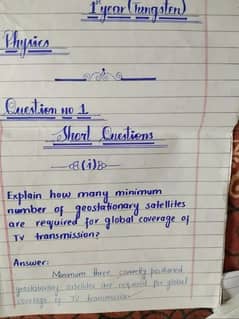 1st year (Tungsten)
Physics
Question no 1
Short Questions
(i)
Explain how many minimum
number of geostationary satellites
are required for global coverage of
TV transmission?
Answer:
Minimum three correctly positioned
geostationary satellites are required for global
coverage of TV transmission